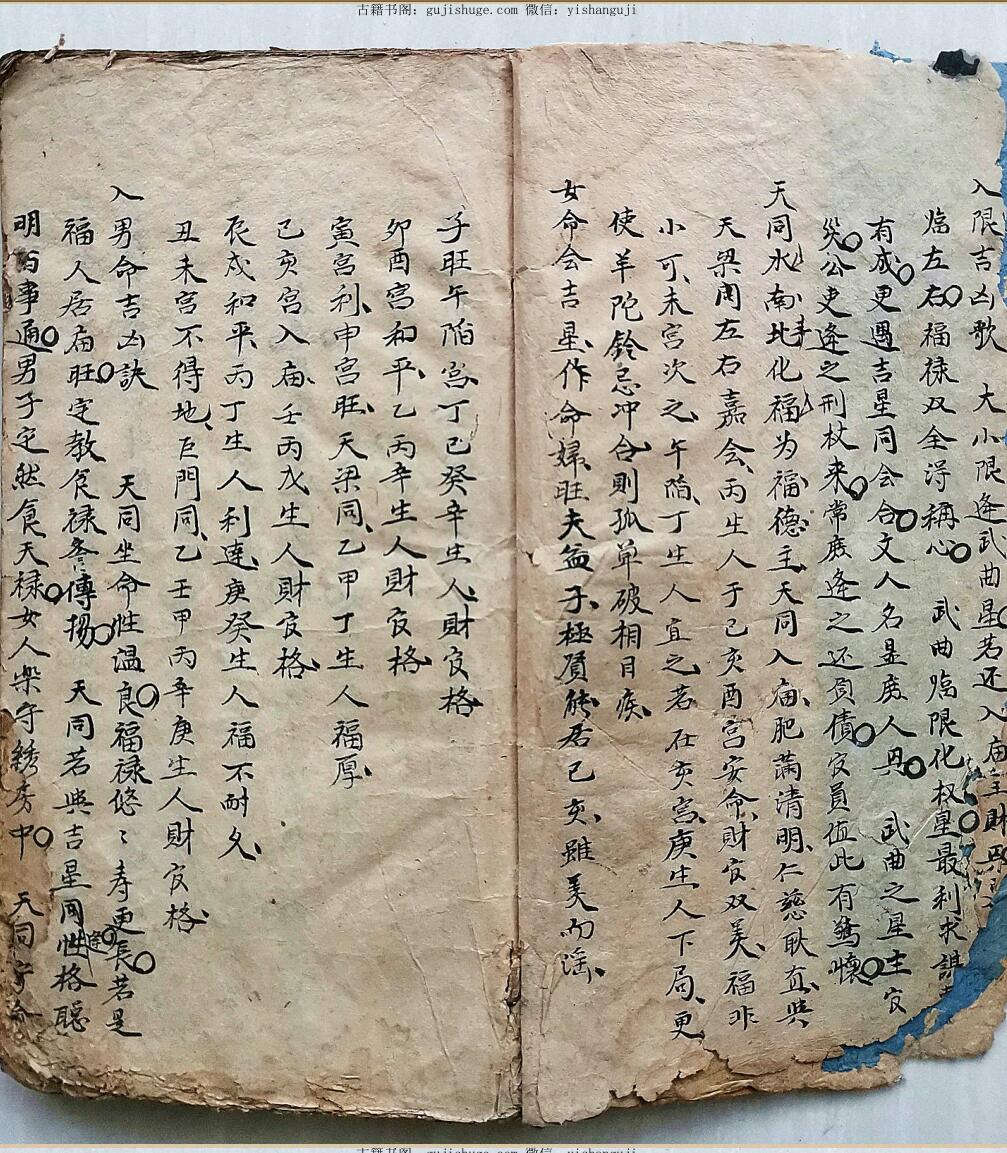 古籍书阁: gujishuge.com 微信: yishanguji
入限吉凶歌 大小限逢武曲星若还入庙主財興
临左右福禄双全淂稱心 武曲临限化权星最利求謀
有成更遇吉星同会合文人名显庶人興 武曲之星主官
災公吏逢之刑杖来常庶逢之还负債官員值此有驚懷
天同水南北化福为福德主天同入庙肥滿清明仁慈耿直與
天梁同左右嘉会丙生人于己亥酉宫安命財官双美福非
小可未宫次之午陷丁生人宜之若在亥宫庚生人下局更
使羊陀鈴忌冲合則孤单破相目疾
女命会吉星作命婦旺夫益子極質能居己亥雖美而滛
子旺午陷宫丁己癸辛生人財官格
卯酉宫和平乙丙辛生人財官格
寅宫利申宫旺天梁同乙甲丁生人福厚
己亥宫入庙壬丙戊生人財官格
辰戌和平丙丁生人利達庚癸生人福不耐久
丑未宫不得地巨門同乙壬甲丙辛庚生人財官格
入男命吉凶訣 天同坐命性温良福禄悠〻寿更長若是
福人居庙旺定教食禄譽傳揚 天同若與吉星同性格聪
逢
明百事通男子定然食天禄女人樂守綉房中 天同守命
古籍书阁: gujishuge.com 微信: yishanguji